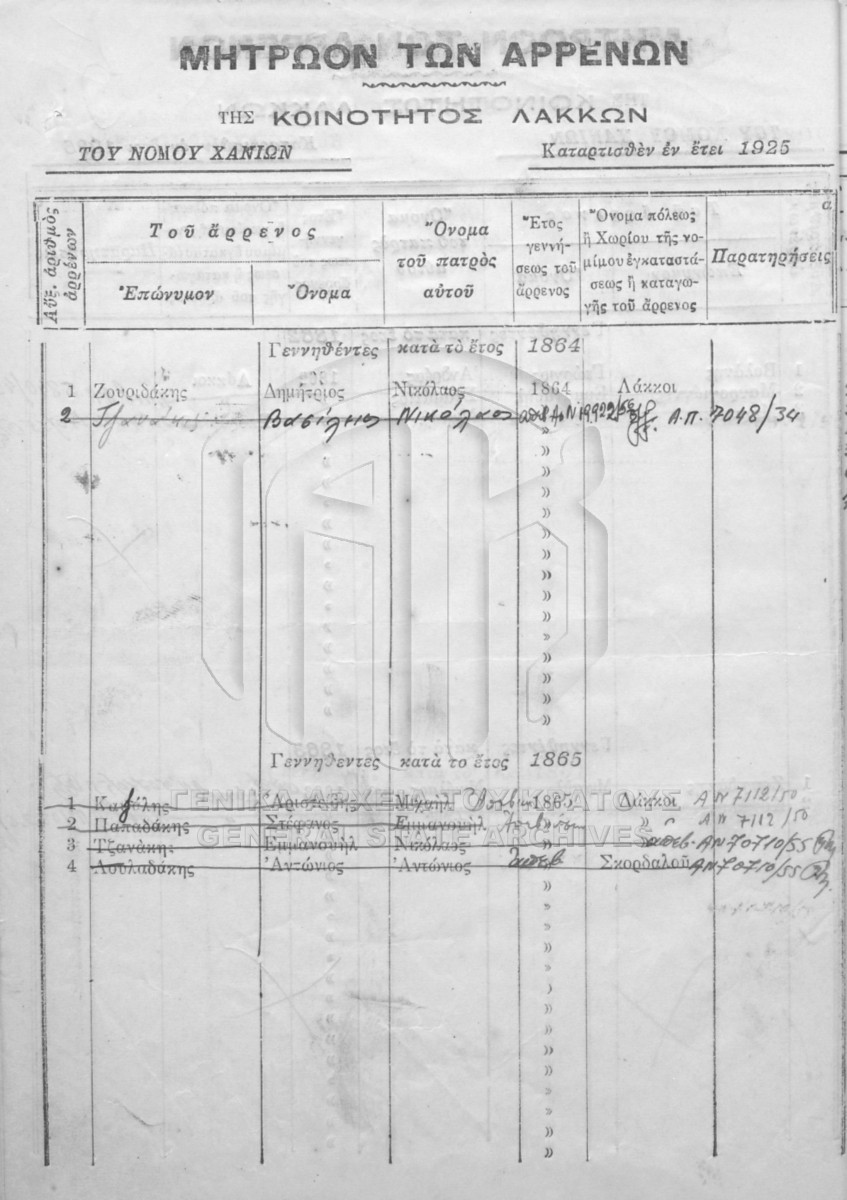 ΜΗΤΡΩΟΝ ΤΩΝ ΑΡΡΕΝΩΝ
ΤΗΣ ΚΟΙΝΟΤΗΤΟΣ ΛΑΚΚΩΝ
ΤΟΥ ΝΟΜΟΥ ΧΑΝΙΩΝ Καταρτισθὲν ἐν ἔτει 1925
α
Αὔξ. ἀριθμὸς ἀρρένων
Τοῦ ἄρρενος
Ἐπώνυμον Ὄνομα
Ὄνομα
τοῦ πατρὸς
αὐτοῦ
Ἔτος
γεννή-
σεως τοῦ
ἄρρενος
Ὄνομα πόλεως
ἢ Χωρίου τῆς νο-
μίμου ἐγκαταστά-
σεως ἢ καταγω-
γῆς τοῦ ἄρρενος
Παρατηρήσεις
Γεννηθέντες κατὰ τὸ ἔτος 1864
1 Ζουριδάκης Δημήτριος Νικόλαος 1864 Λάκκοι
2 Βασίλειος Νικόλαος Α.Π. 7048/34
Γεννηθεντες κατὰ το ἔτος 1865
1 Μιχαὴλ 1865 Λάκκοι ΑΝ 7112/50
2 Παπαδάκης Στέφανος Ἐμμανουὴλ » ΑΝ 7112/50
3 Τζανάκης Ἐμμανουὴλ Νικόλαος » απεβ. ΑΝ 70710/55
4 Λουλαδάκης Ἀντώνιος Ἀντώνιος απεβ Σκορδαλοῦ ΑΝ 70710/55
ΓΕΝΙΚΑ ΑΡΧΕΙΑ ΤΟΥ ΚΡΑΤΟΥΣ
GENERAL STATE ARCHIVES